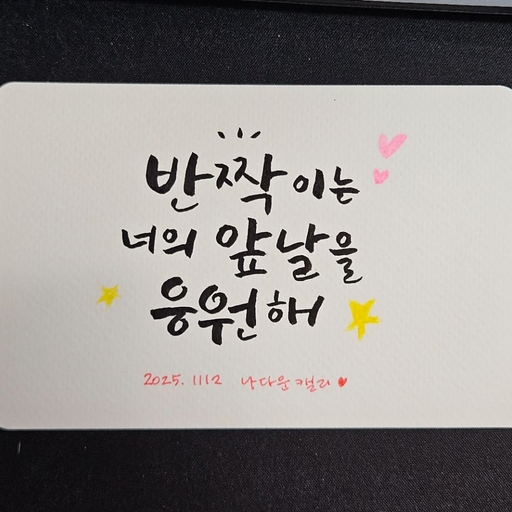 반짝이는
너의 앞날을
응원해
2025. 1112 나다운캘리